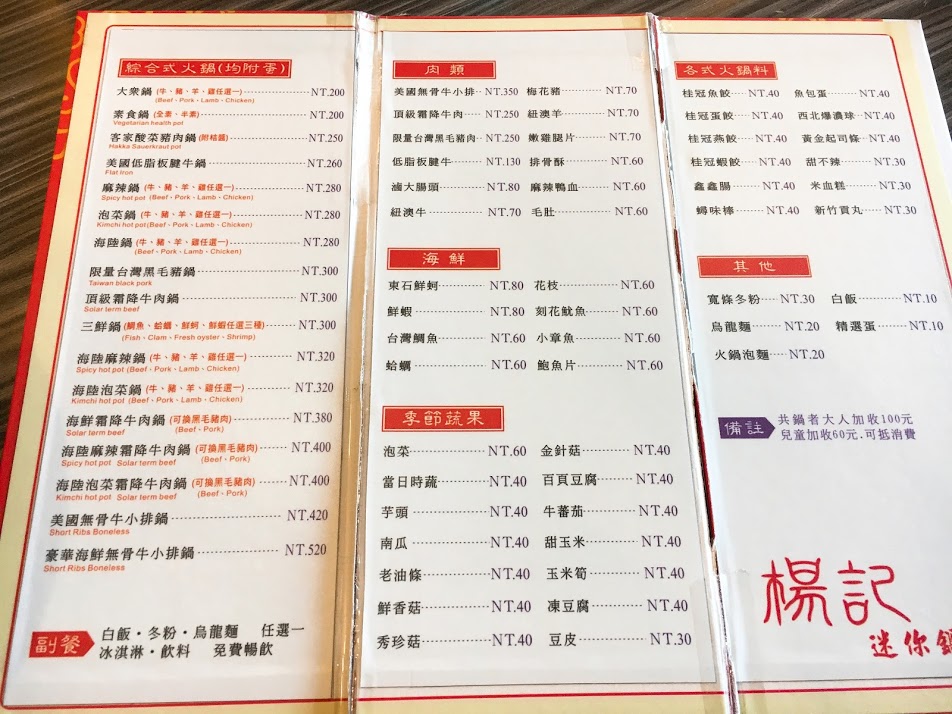 綜合式火鍋(均附蛋)
大眾鍋(牛、豬、羊、雞任選一)……NT.200
(Beef、Pork、Lamb、Chicken)
素食鍋(全素、半素)……NT.200
Vegetarian health pot
客家酸菜豬肉鍋(附桔醬)……NT.250
Hakka Sauerkraut pot
美國低脂板腱牛鍋……NT.260
Flat Iron
麻辣鍋(牛、豬、羊、雞任選一)……NT.280
Spicy hot pot (Beef、Pork、Lamb、Chicken)
泡菜鍋(牛、豬、羊、雞任選一)……NT.280
Kimchi hot pot(Beef、Pork、Lamb、Chicken)
海陸鍋(牛、豬、羊、雞任選一)……NT.280
(Beef、Pork、Lamb、Chicken)
限量台灣黑毛豬鍋……NT.300
Taiwan black pork
頂級霜降牛肉鍋……NT.300
Solar term beef
三鮮鍋(鯛魚、蛤蠣、鮮蚵、鮮蝦任選三種)……NT.300
(Fish、Clam、Fresh oyster、Shrimp)
海陸麻辣鍋(牛、豬、羊、雞任選一)……NT.320
Spicy hot pot (Beef、Pork、Lamb、Chicken)
海陸泡菜鍋(牛、豬、羊、雞任選一)……NT.320
Kimchi hot pot (Beef、Pork、Lamb、Chicken)
海鮮霜降牛肉鍋(可換黑毛豬肉)……NT.380
Solar term beef (Beef、Pork)
海陸麻辣霜降牛肉鍋(可換黑毛豬肉)……NT.400
Spicy hot pot Solar term beef (Beef、Pork)
海陸泡菜霜降牛肉鍋(可換黑毛豬肉)……NT.400
Kimchi hot pot Solar term beef (Beef、Pork)
美國無骨牛小排鍋……NT.420
Short Ribs Boneless
豪華海鮮無骨牛小排鍋……NT.520
Short Ribs Boneless
副餐
白飯・冬粉・烏龍麵 任選一
冰淇淋・飲料 免費暢飲
肉類
美國無骨牛小排…NT.350 梅花豬……NT.70
頂級霜降牛肉……NT.250 紐澳羊……NT.70
限量台灣黑毛豬肉…NT.250 嫩雞腿片……NT.70
低脂板腱牛……NT.130 排骨酥……NT.60
滷大腸頭……NT.80 麻辣鴨血……NT.60
紐澳牛……NT.70 毛肚……NT.60
海鮮
東石鮮蚵……NT.80 花枝……NT.60
鮮蝦……NT.80 刻花魷魚……NT.60
台灣鯛魚……NT.60 小章魚……NT.60
蛤蠣……NT.60 鮑魚片……NT.60
季節蔬果
泡菜……NT.60 金針菇……NT.40
當日時蔬……NT.40 百頁豆腐……NT.40
芋頭……NT.40 牛蕃茄……NT.40
南瓜……NT.40 甜玉米……NT.40
老油條……NT.40 玉米筍……NT.40
鮮香菇……NT.40 凍豆腐……NT.40
秀珍菇……NT.40 豆皮……NT.30
各式火鍋料
桂冠魚餃……NT.40 魚包蛋……NT.40
桂冠蛋餃……NT.40 西北爆濃球…NT.40
桂冠燕餃……NT.40 黃金起司條…NT.40
桂冠蝦餃……NT.40 甜不辣……NT.30
鑫鑫腸……NT.40 米血糕……NT.30
蟳味棒……NT.40 新竹貢丸……NT.30
其他
寬條冬粉……NT.30 白飯……NT.10
烏龍麵……NT.20 精選蛋……NT.10
火鍋泡麵……NT.20
備註
共鍋者大人加收100元
兒童加收60元.可抵消費
楊記
迷你鍋